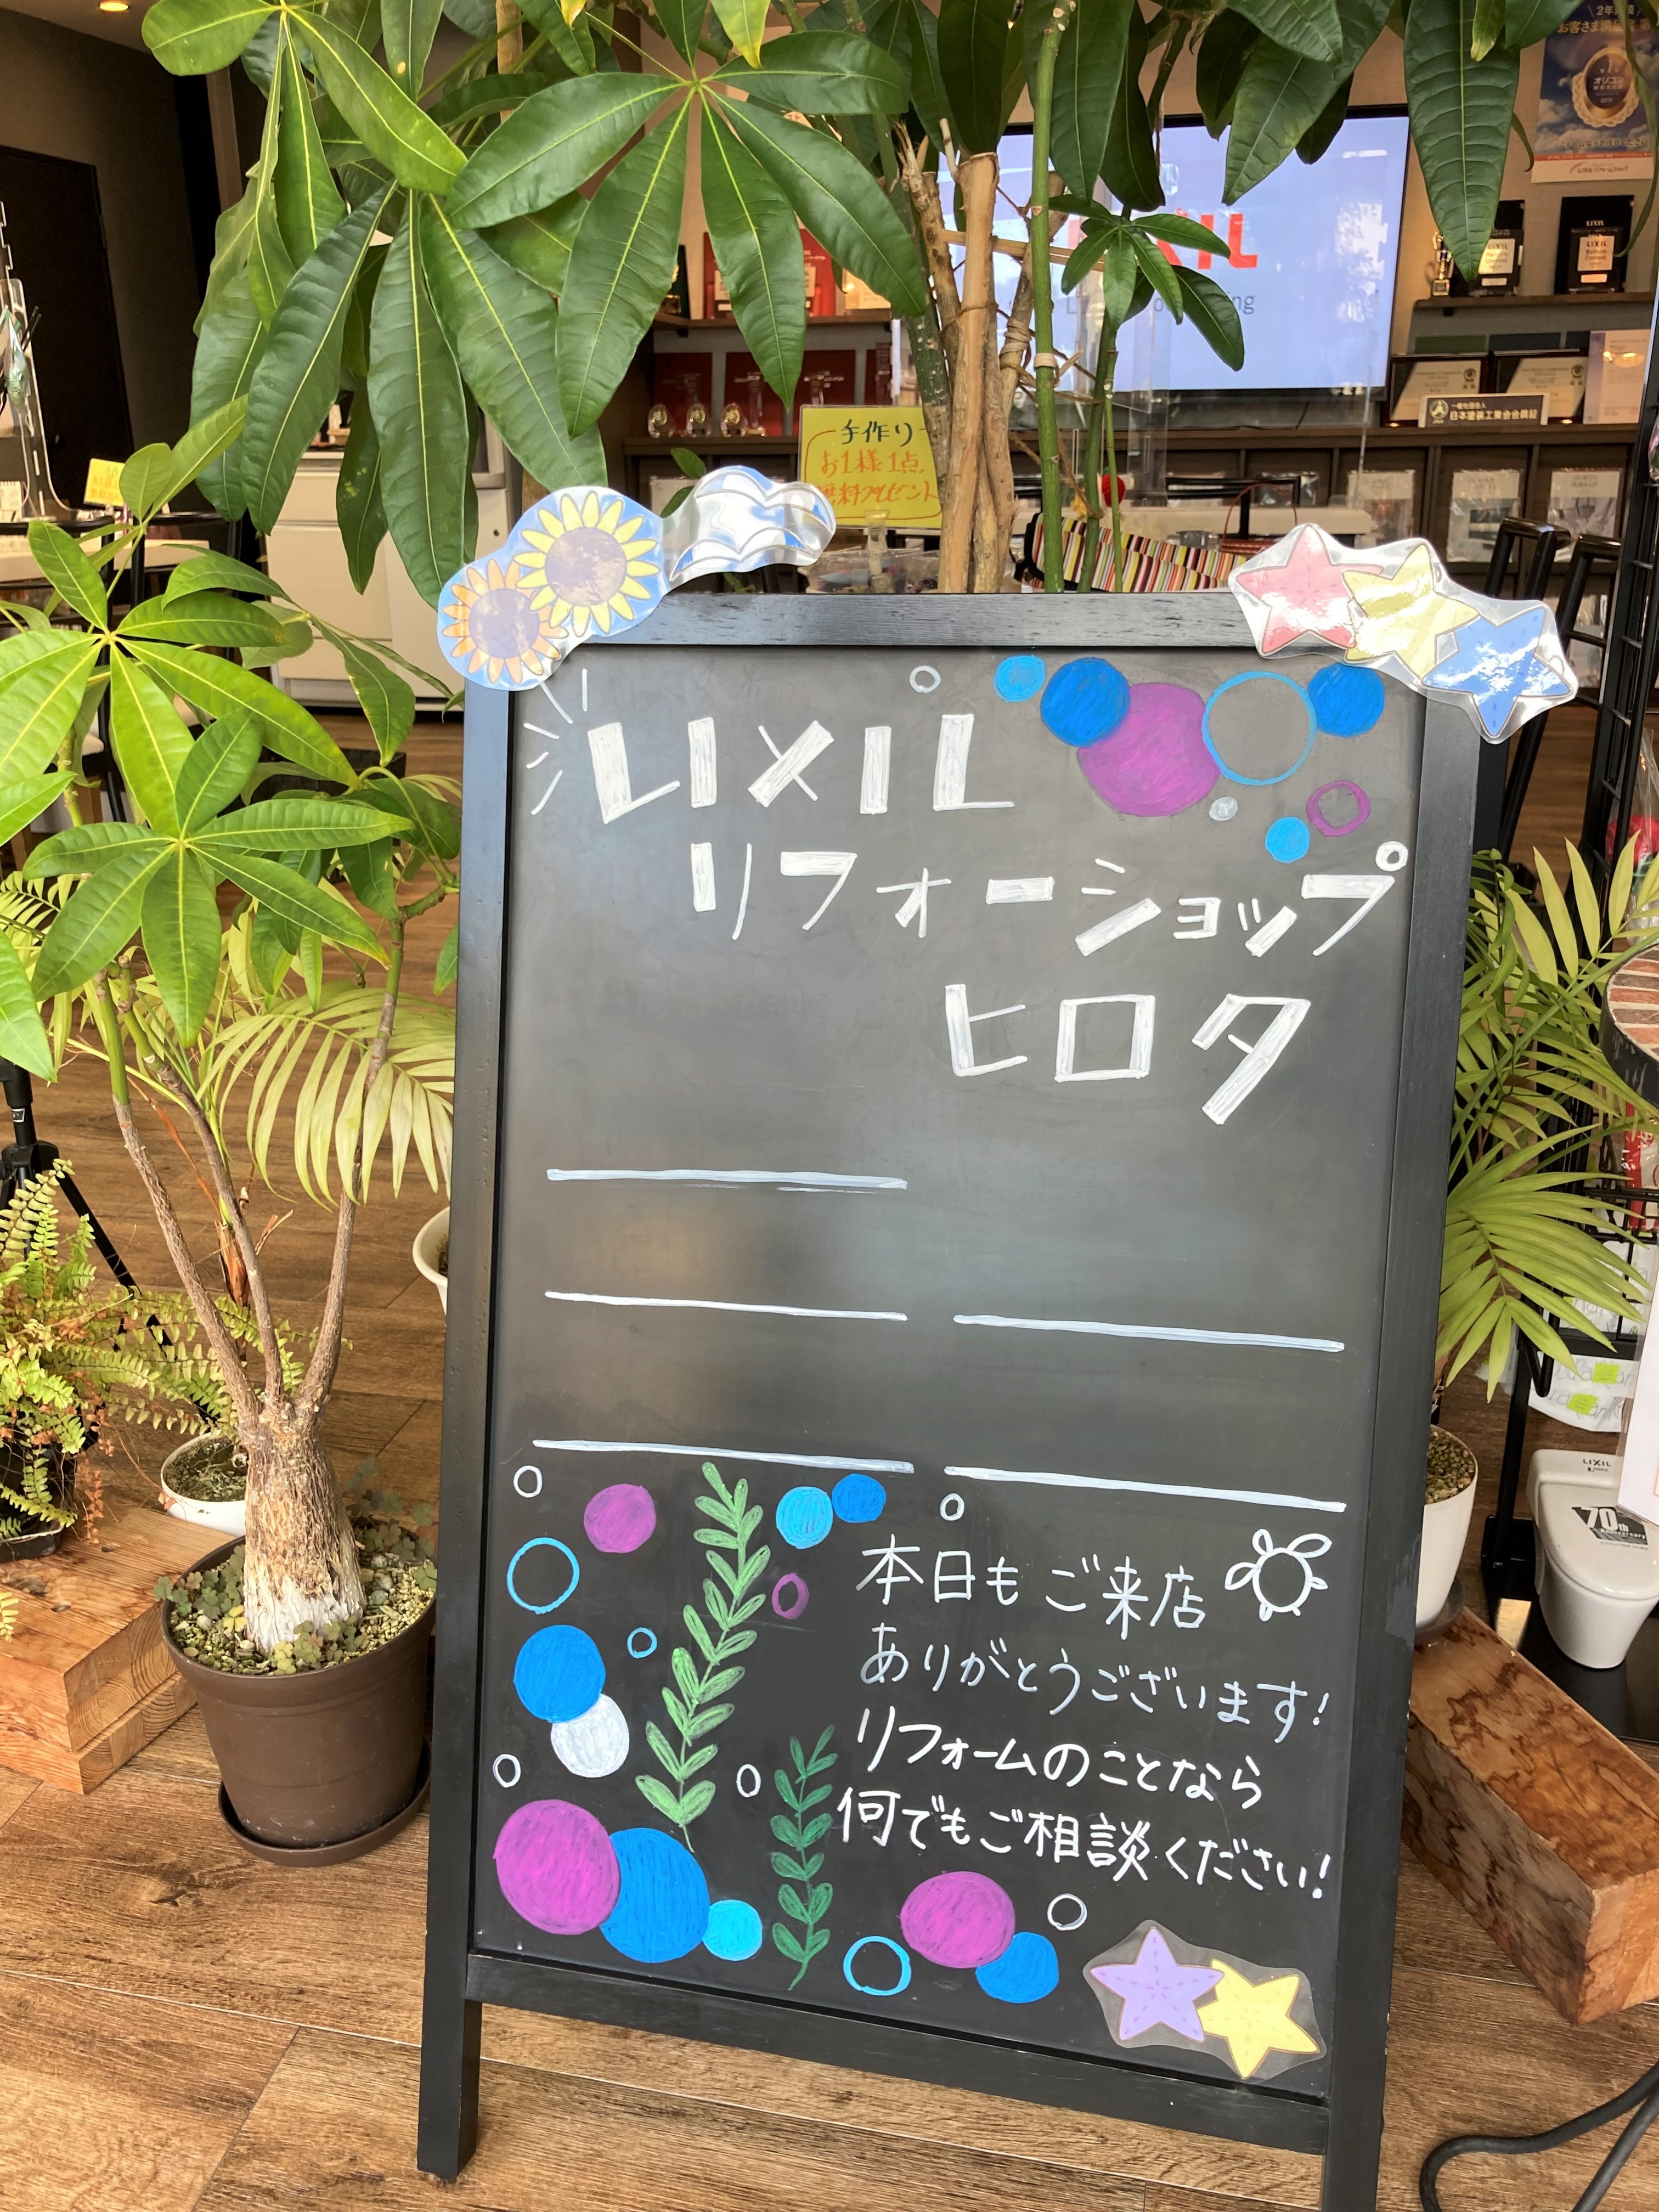 手作り
お1様1点
無料プレゼント
LIXIL
リフォーショップ
ヒロタ
本日もご来店
ありがとうございます!
リフォームのことなら
何でもご相談ください!
一般社団法人
日本塗装工業会会員証
LIXIL
70th
Anniversary
LIXIL
オリコン